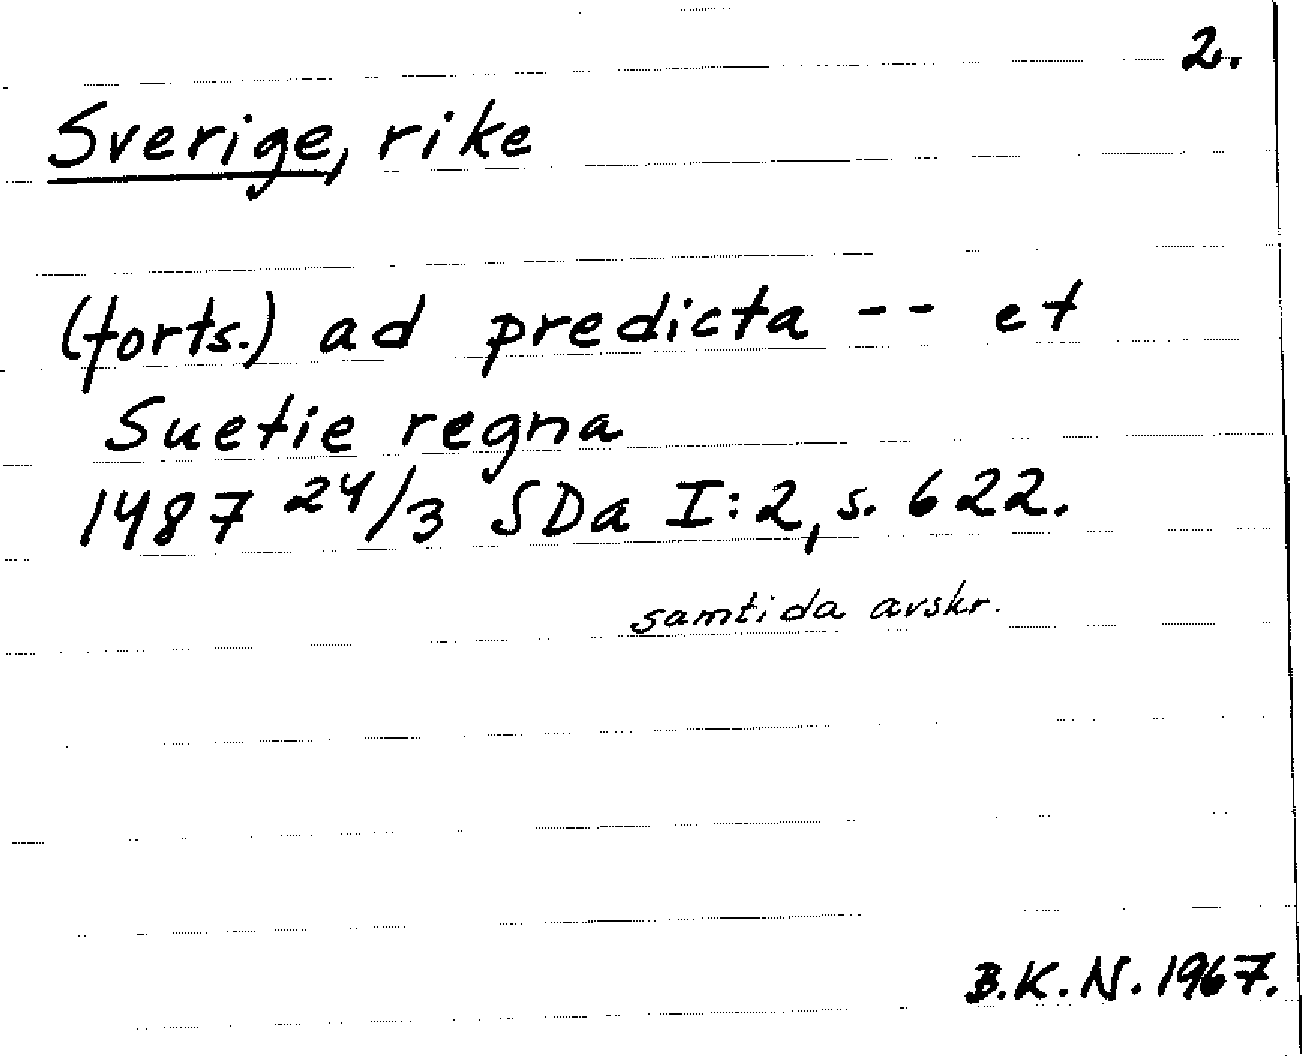 2.
Sverige, rike
(forts.) ad predicta -- et
Suetie regna
1487 24/3 SDa I:2, s. 622.
samtida avskr.
B.K.N. 1967.